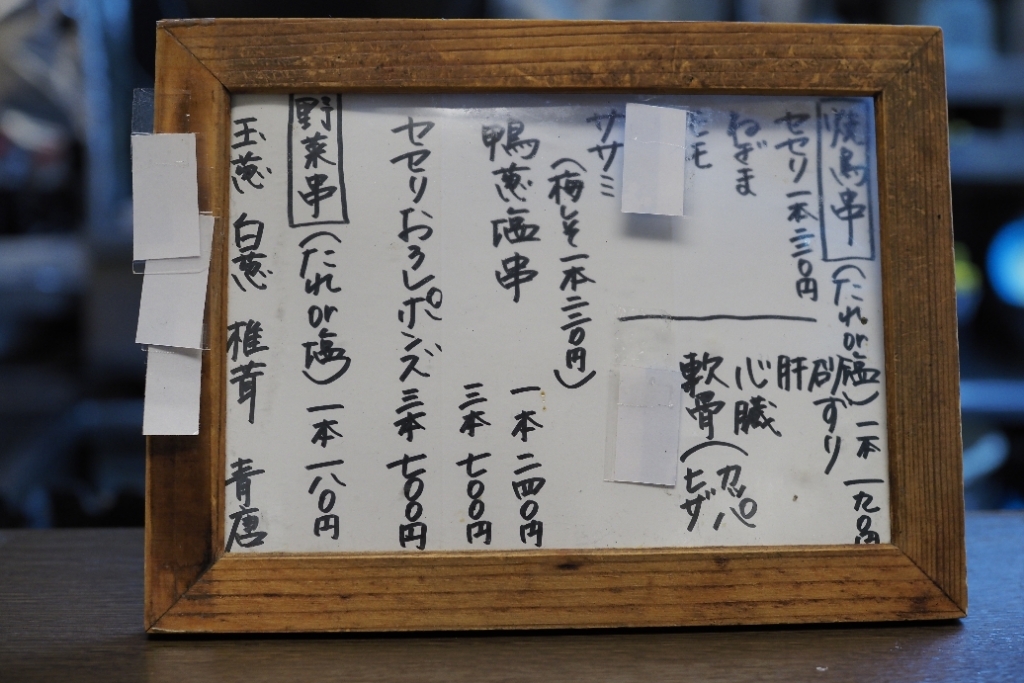 焼鳥串(たれor塩)一本 一九〇円
セセリ一本二三〇円
ねぎま
モモ
ササミ
(梅しそ一本二二〇円)
砂ずり
肝
心臓
軟骨(カッパ
ヒザ
鴨葱塩串 一本 二四〇円
三本 七〇〇円
セセリおろしポンズ 三本 七〇〇円
野菜串(たれor塩) 一本 一八〇円
玉葱 白葱 椎茸 青唐